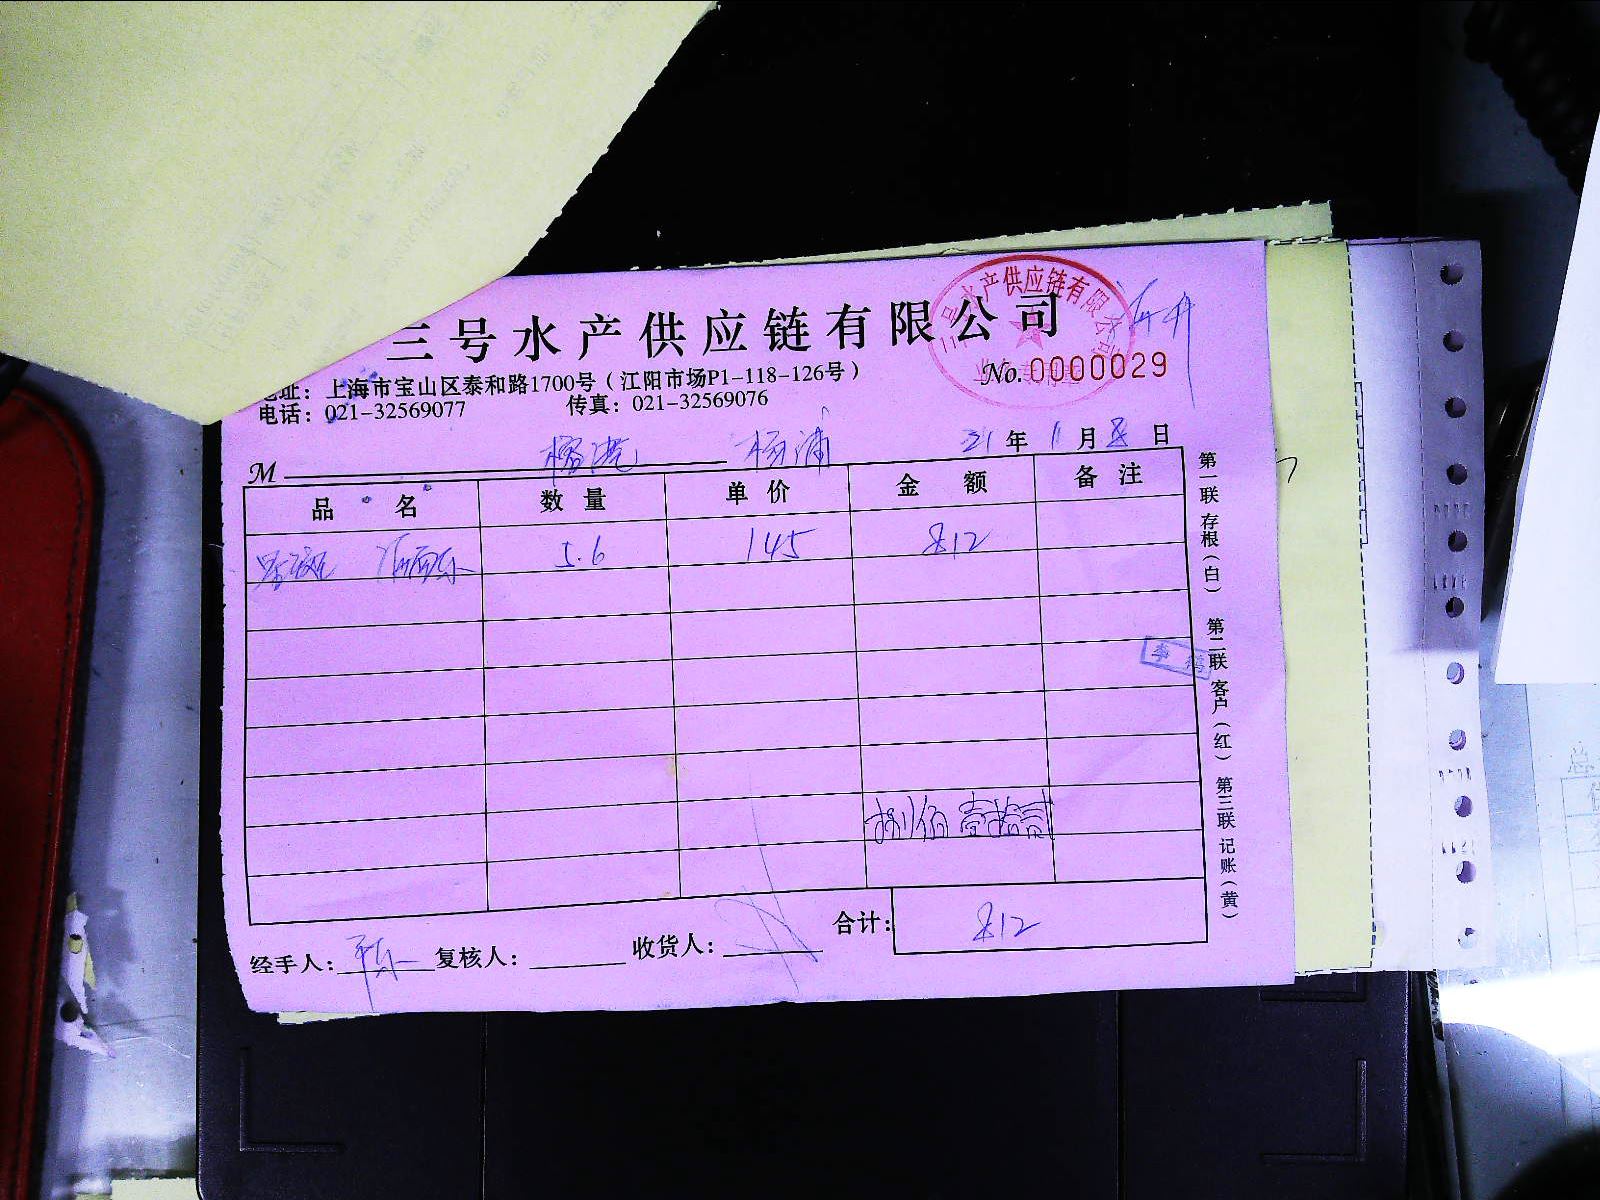 三号水产供应链有限公司
No. 0000029
地址：上海市宝山区泰和路1700号（江阳市场P1-118-126号）
电话：021-32569077 传真：021-32569076
M 杨浦 21年1月8日
品名 数量 单价 金额 备注
5.6 145 812
捌佰壹拾贰
合计：812
经手人： 复核人： 收货人：
第一联 存根（白） 第二联 客户（红） 第三联 记账（黄）